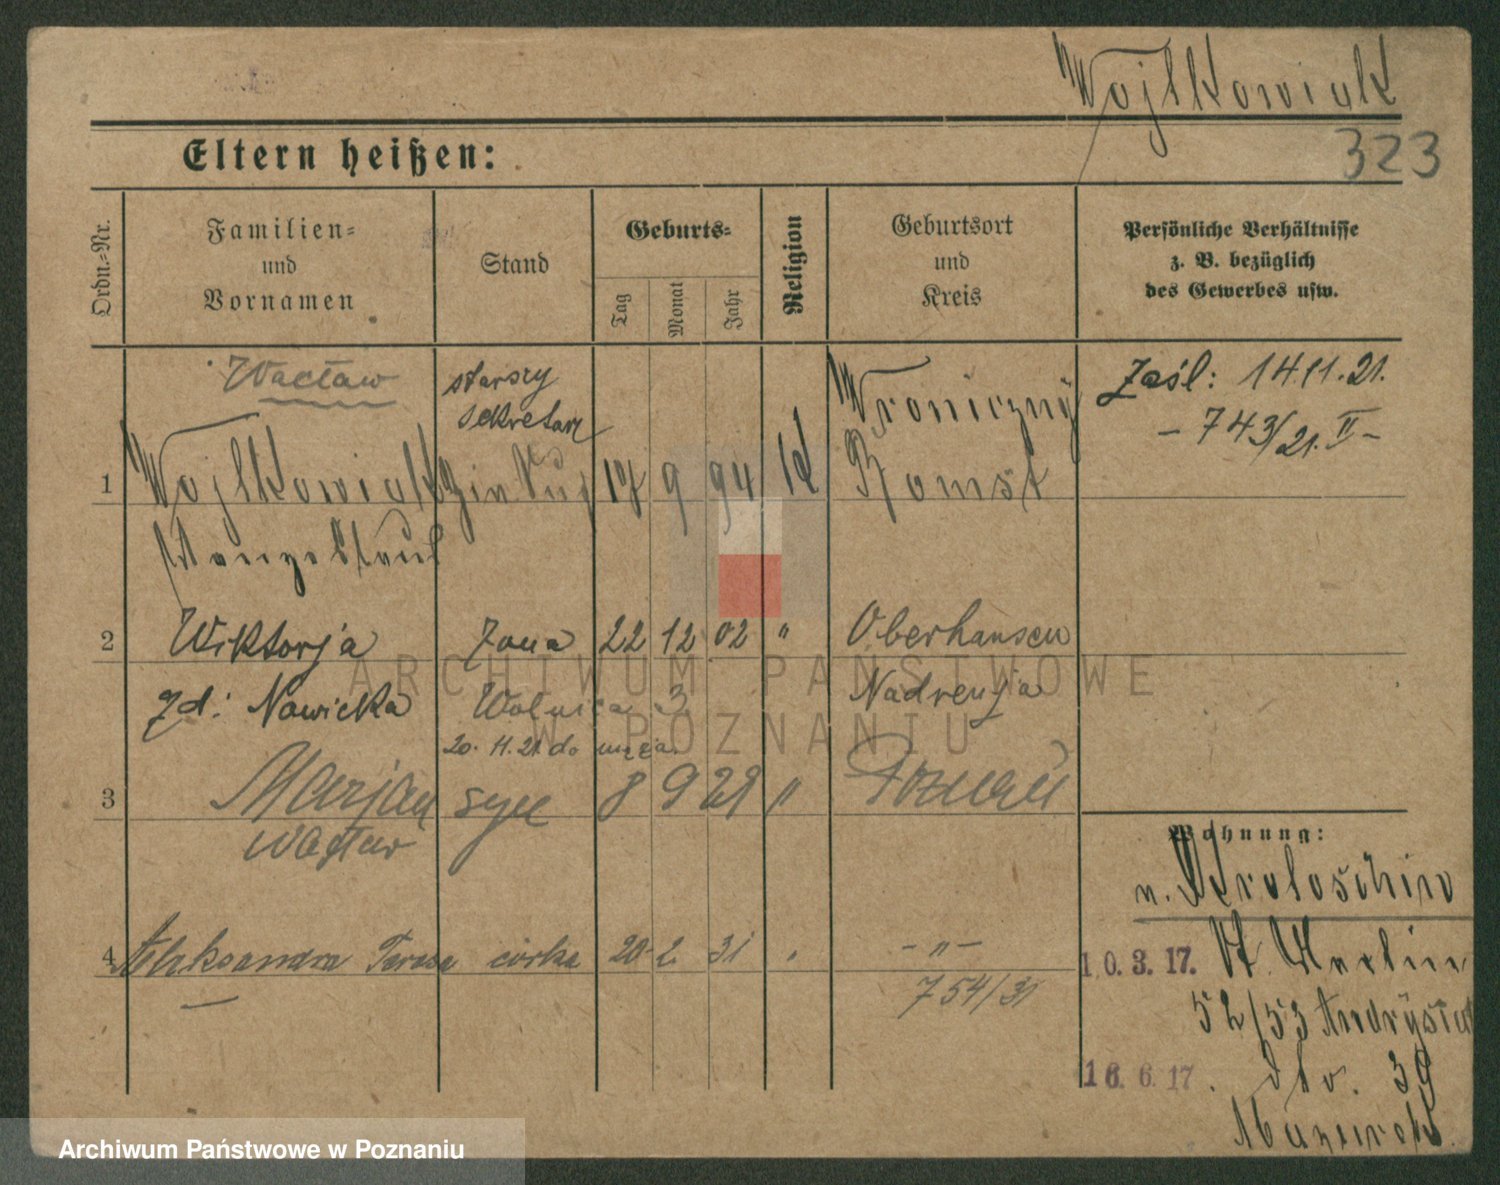 Wojtkowiak
323
Eltern heißen:
Ordn.-Nr.
Familien-
und
Vornamen
Stand
Geburts-
Tag
Monat
Jahr
Religion
Geburtsort
und
Kreis
Persönliche Verhältnisse
z. B. bezüglich
des Gewerbes usw.
Wacław
starszy
sekretarz
Zaśl: 14.11.21.
- 743/21. II -
1 Wojtkowiak 17 9 94 kt Wroniczny
Bomst
2 Wiktorja żona 22 12 02 " Oberhausen
zd: Nowicka Wolnica 3 Nadrenja
20. 11. 21. do męża.
3 Marjan syn 8 9 29 " Poznań
Wacław
4 Aleksandra Teresa córka 20 2. 31 " - " -
754/31
Wohnung:
v. Krotoschin
10. 3. 17. St. Martin
52/53
16. 6. 17. 39
ARCHIWUM PAŃSTWOWE
W POZNANIU
Archiwum Państwowe w Poznaniu